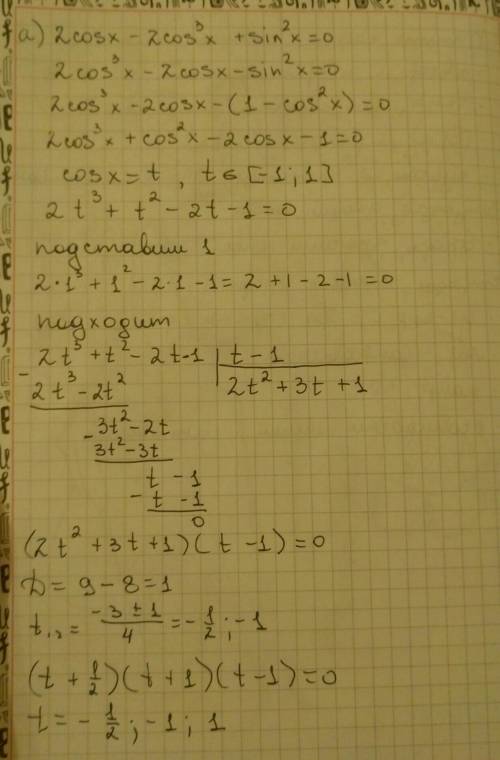 а) 2cosx - 2cos³x + sin²x = 0
2cos³x - 2cosx - sin²x = 0
2cos³x - 2cosx - (1 - cos²x) = 0
2cos³x + cos²x - 2cosx - 1 = 0
cosx = t , t ∈ [-1; 1]
2t³ + t² - 2t - 1 = 0
подставим 1
2·1³ + 1² - 2·1 - 1 = 2 + 1 - 2 - 1 = 0
подходит
2t³ + t² - 2t - 1 | t - 1
- 2t³ - 2t² | 2t² + 3t + 1
- 3t² - 2t
3t² - 3t
t - 1
- t - 1
0
(2t² + 3t + 1)(t - 1) = 0
D = 9 - 8 = 1
t₁,₂ = (-3 ± 1)/4 = -1/2 ; -1
(t + 1/2)(t + 1)(t - 1) = 0
t = -1/2 ; -1 ; 1